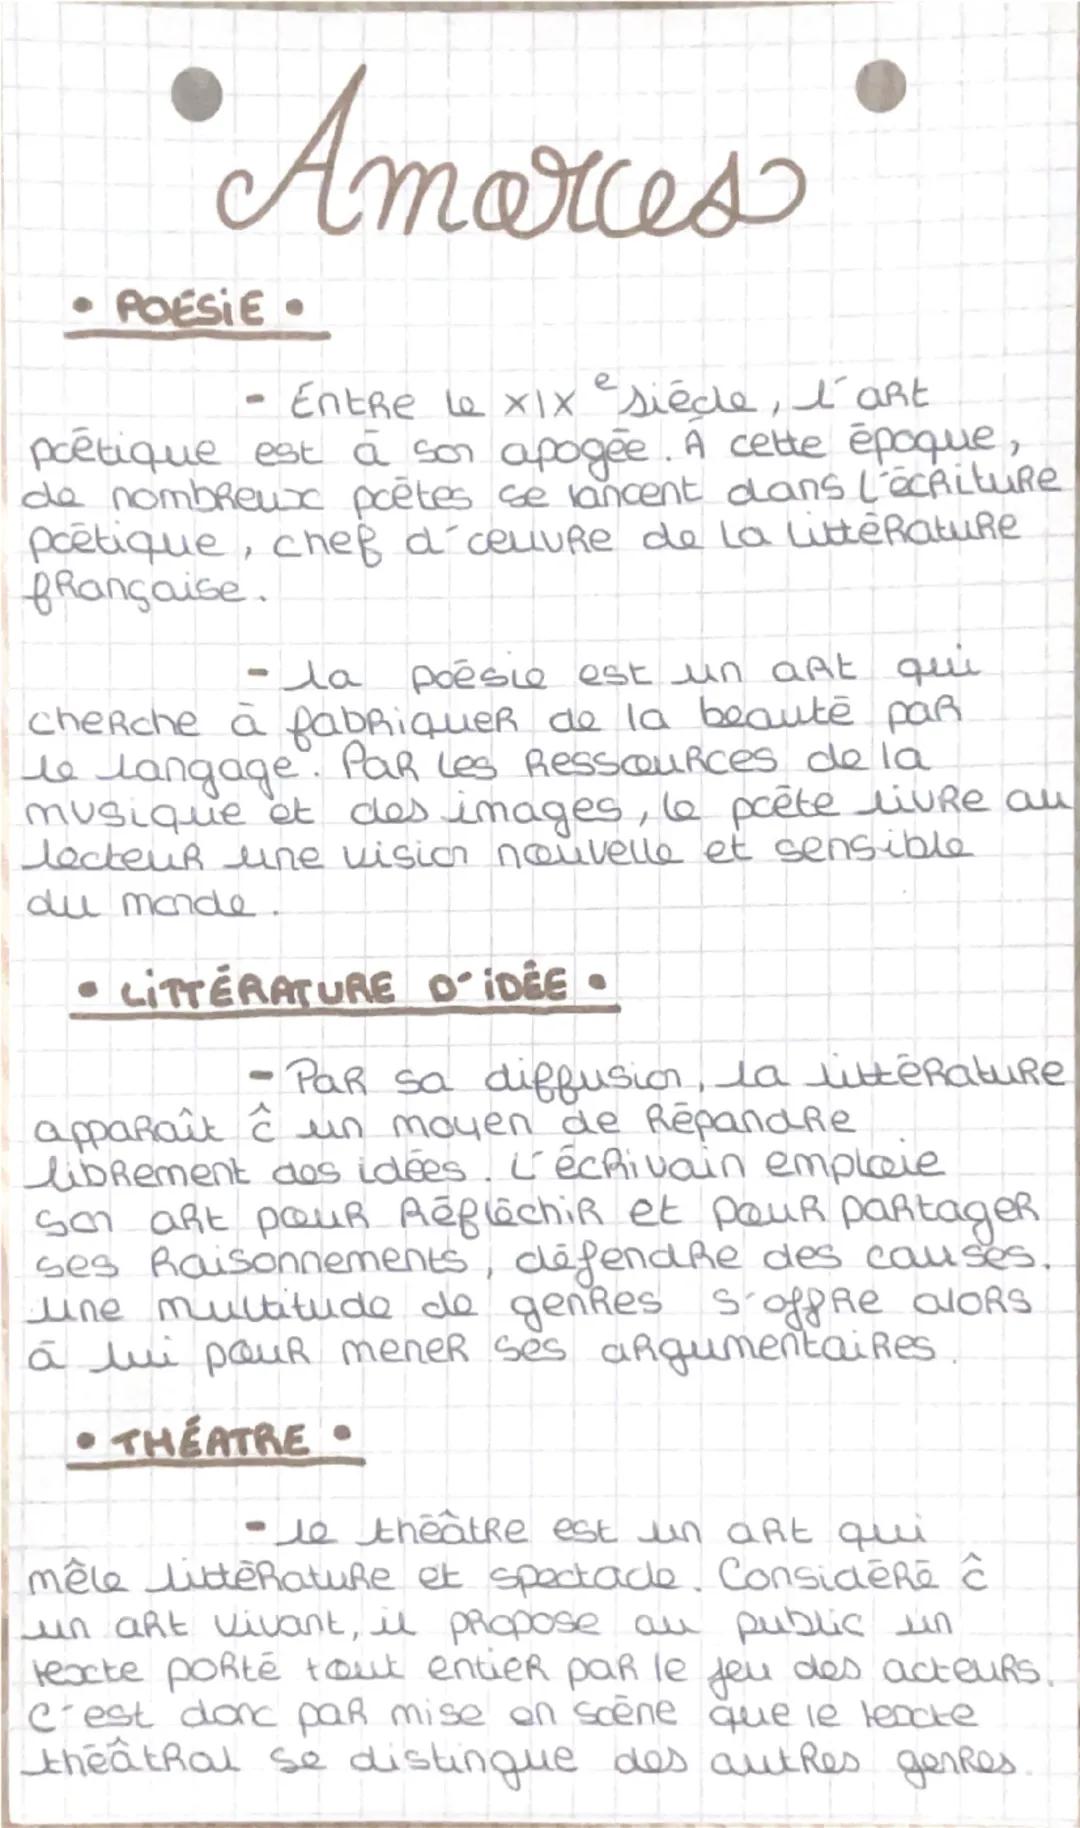 Amorces
• POÉSIE •
- Entre le XIXe siècle, l'art
poétique est à son apogée. À cette époque,
de nombreux poètes se lancent dans l'écriture
poétique, chef d'œuvre de la littérature
française.
- la poésie est un art qui
cherche à fabriquer de la beauté par
le langage. Par les ressources de la
musique et des images, le poète livre au
lecteur une vision nouvelle et sensible
du monde.
• LITTÉRATURE D'IDÉE •
- Par sa diffusion, la littérature
apparaît ĉ un moyen de répandre
librement des idées. L'écrivain emploie
son art pour réfléchir et pour partager
ses raisonnements, défendre des causes.
une multitude de genres s'offre alors
à lui pour mener ses argumentaires.
• THÉATRE •
- le théâtre est un art qui
mêle littérature et spectacle. Considéré ĉ
un art vivant, il propose au public un
texte porté tout entier par le jeu des acteurs.
C'est donc par mise en scène que le texte
théâtral se distingue des autres genres.